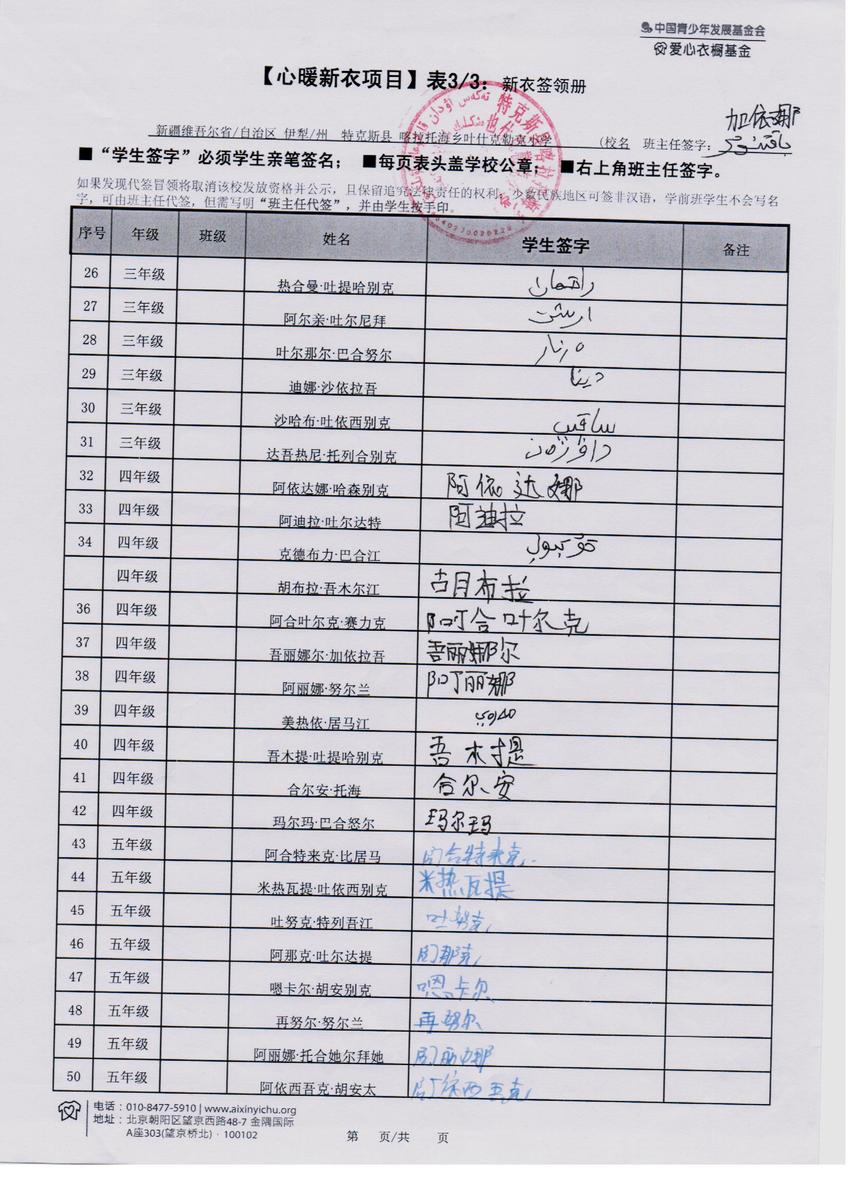 中国青少年发展基金会
爱心衣橱基金
【心暖新衣项目】表3/3：新衣签领册
加依娜
新疆维吾尔省/自治区 伊犁/州 特克斯县 喀拉托海乡叶什克勒克小学 (校名 班主任签字：
■“学生签字”必须学生亲笔签名； ■每页表头盖学校公章； ■右上角班主任签字。
如果发现代签冒领将取消该校发放资格并公示，且保留追究法律责任的权利；少数民族地区可签非汉语，学前班学生不会写名
字，可由班主任代签，但需写明“班主任代签”，并由学生按手印。
序号 年级 班级 姓名 学生签字 备注
26 三年级 热合曼·吐提哈别克
27 三年级 阿尔亲·吐尔尼拜
28 三年级 叶尔那尔·巴合努尔
29 三年级 迪娜·沙依拉吾 دينا
30 三年级 沙哈布·吐依西别克
31 三年级 达吾热尼·托列合别克
32 四年级 阿依达娜·哈森别克 阿依达娜
33 四年级 阿迪拉·吐尔达特 阿迪拉
34 四年级 克德布力·巴合江
四年级 胡布拉·吾木尔江 胡布拉
36 四年级 阿合叶尔克·赛力克 阿合叶尔克
37 四年级 吾丽娜尔·加依拉吾 吾丽娜尔
38 四年级 阿丽娜·努尔兰 阿丽娜
39 四年级 美热依·居马江
40 四年级 吾木提·吐提哈别克 吾木提
41 四年级 合尔安·托海 合尔安
42 四年级 玛尔玛·巴合怒尔 玛尔玛
43 五年级 阿合特来克·比居马 阿合特来克
44 五年级 米热瓦提·吐依西别克 米热瓦提
45 五年级 吐努克·特列吾江 吐努克
46 五年级 阿那克·吐尔达提 阿那克
47 五年级 嗯卡尔·胡安别克 嗯卡尔
48 五年级 再努尔·努尔兰 再努尔
49 五年级 阿丽娜·托合她尔拜她 阿丽娜
50 五年级 阿依西吾克·胡安太 阿依西吾克
电话：010-8477-5910 | www.aixinyichu.org
地址：北京朝阳区望京西路48-7 金隅国际
A座303(望京桥北)·100102
第 页/共 页